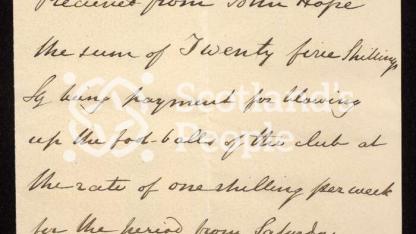 Received from John Hope
the sum of Twenty five Shillings
Sg being payment for blowing
up the foot-balls of the club at
the rate of one shilling per week
for the period from Saturday
Scotland's
People